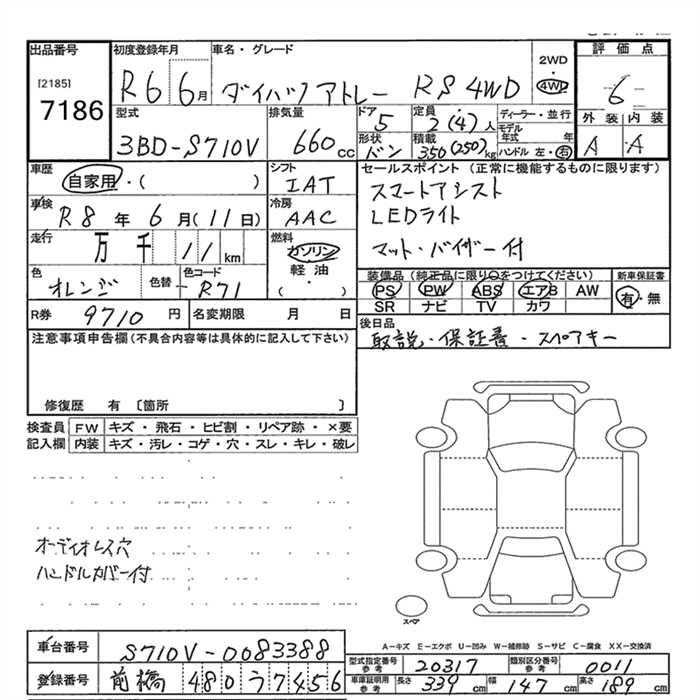 出品番号 初度登録年月 車名・グレード 2WD 評価点
[2185] R6 6月 ダイハツ アトレー RS 4WD 4WD 6
7186 型式 排気量 ドア 定員 ディーラー・並行 外装 内装
3BD-S710V 660cc 5 2(4)人 モデル年式 年 A A
形状 バン 積載 350(250)kg ハンドル 左・右
車歴 自家用・( ) シフト IAT セールスポイント(正常に機能するものに限ります)
車検 R8年 6月(11日) 冷房 AAC スマートアシスト
LEDライト
走行 万 千 11km 燃料 ガソリン 軽油 ( ・ ) マット・バイザー付
色 オレンジ 色替 - 色コード R71 装備品(純正品に限り○をつけてください) 新車保証書
PS PW ABS エアB AW 有・無
SR ナビ TV カワ
R券 9710円 名変期限 月 日 後日品
注意事項申告欄(不具合内容等は具体的に記入して下さい) 取説・保証書・スペアキー
修復歴 有 〔箇所 〕
検査員 FW キズ・飛石・ヒビ割・リペア跡・×要
記入欄 内装 キズ・汚レ・コゲ・穴・スレ・キレ・破レ
オーディオレス穴
ハンドルカバー付
スペア
A-キズ E-エクボ U-凹み W-補修跡 S-サビ C-腐食 XX-交換済
車台番号 S710V-0083388
型式指定番号 参考 20317 類別区分番号 参考 0011
登録番号 前橋 480 う 7456
車庫証明用 参考 長さ 339cm 幅 147cm 高さ 189cm